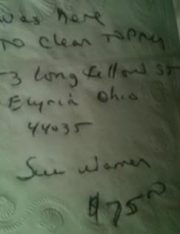 was here
to clean
3 Longfellow St
Elyria Ohio
44035
Sue Warren
$75